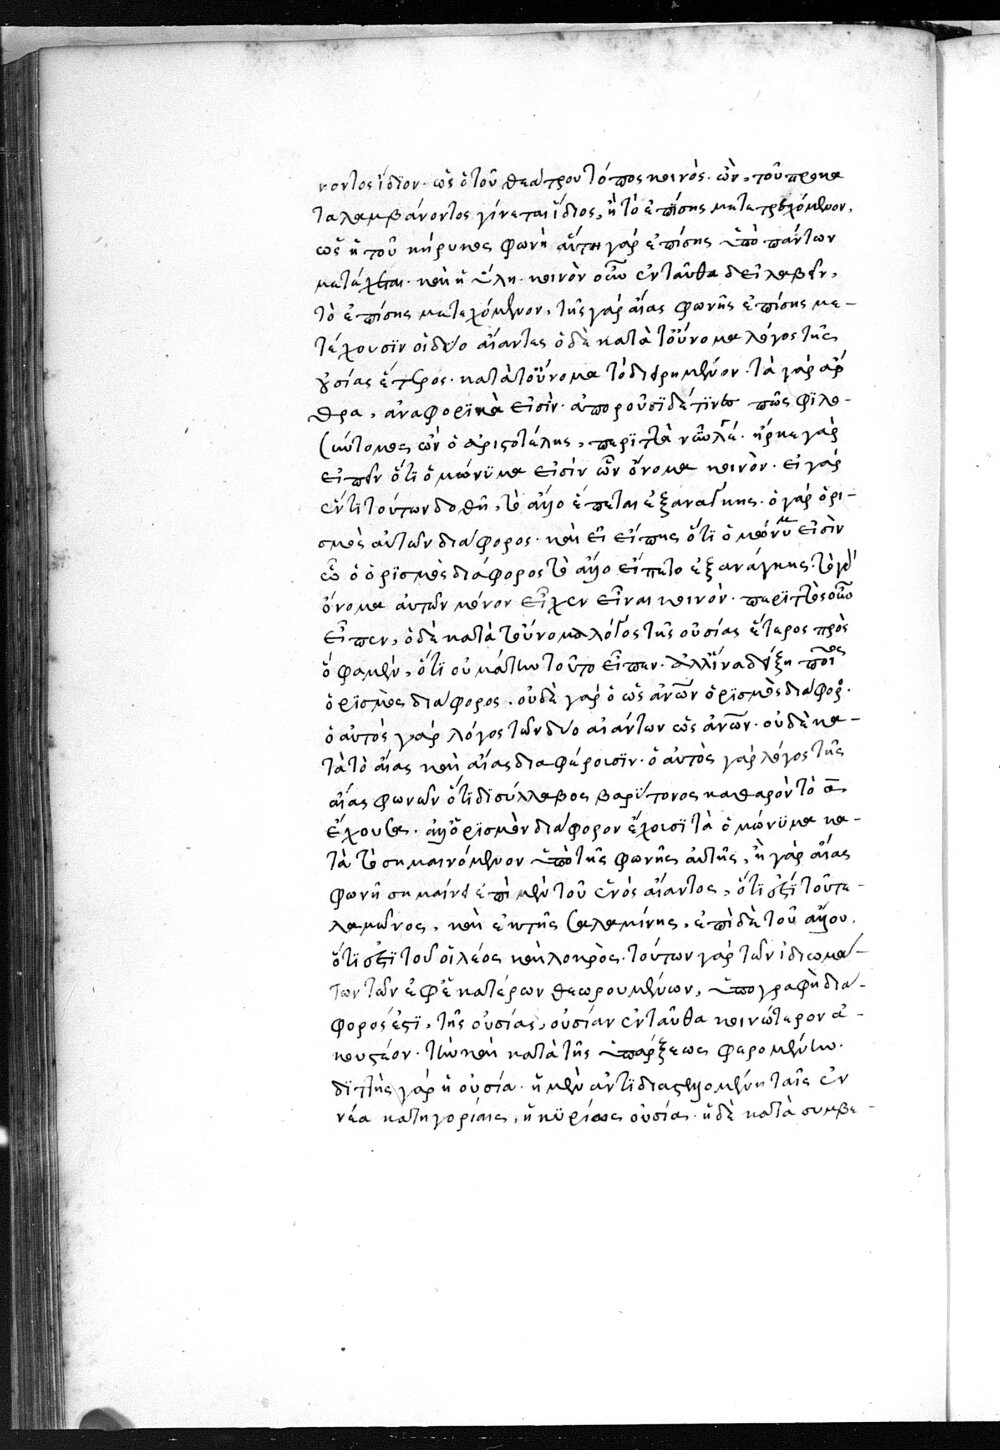 νοντος ἴδιον· ὡς ὁ τοῦ θεάτρου τόπος κοινὸς ὢν, τοῦ προκα
ταλαμβάνοντος γίνεται ἴδιος, ἢ τὸ ἐπίσης κατεχόμενον,
ὡς ἡ τοῦ κήρυκος φωνὴ αὕτη γὰρ ἐπίσης ὑπὸ πάντων
κατέχεται· καὶ ἡ ὕλη· κοινὸν οὖν ἐνταῦθα δεῖ λαβεῖν,
τὸ ἐπίσης κατεχόμενον, τῆς γὰρ αἴας φωνῆς ἐπίσης με-
τέχουσιν οἱ δύο αἴαντες ὁ δὲ κατὰ τοὔνομα λόγος τῆς
οὐσίας ἕτερος· κατὰ τοὔνομα τὸ διῃρημένον· τὰ γὰρ ἄρ
θρα, ἀναφορϊκὰ εἰσὶν· ἀποροῦσϊ δέ τϊνες πῶς φϊλο-
σύντομος ὢν ὁ ἀριστοτέλης, περιττὰ νῦν λέγει· ἤρκει γὰρ
εἰπεῖν ὅτι ὁμώνϋμα εἰσὶν ὧν ὄνομα κοινὸν· εἰ γὰρ
ἕν τι τούτων δοθῆ, τὸ ἄλλο ἕπεται ἐξανάγκης· ὁ γὰρ ὁρι-
σμὸς αὐτῶν διάφορος· καὶ εἰ εἴπης ὅτϊ ὁμώνυμα εἰσὶν
ὧν ὁ ὁρϊσμὸς διάφορος τὸ ἄλλο εἵπετο ἐξανάγκης· τὸ γὰρ
ὄνομα αὐτῶν μόνον εἶχεν εἶναι κοινὸν· περιττῶς οὖν
εἶπεν, ὁ δὲ κατὰ τοὔνομα λόγος τῆς οὐσίας ἕτερος πρὸς
ὅ φαμὲν, ὅτι οὐ μάτην τοῦτο εἶπεν· ἀλλ' ἵνα δείξη ποῖος
ὁρϊσμὸς διάφορος· οὐδὲ γὰρ ὁ ὡς ἀνθρώπων ὁρϊσμὸς διάφορος·
ὁ αὐτὸς γὰρ λόγος τῶν δύο αἰάντων ὡς ἀνθρώπων· οὐδὲ κα-
τὰ τὸ αἴας καὶ αἴας διαφέρουσϊν· ὁ αὐτὸς γὰρ λόγος τῆς
αἴας φωνῶν ὅτϊ δϊσύλλαβος βαρύτονος καθαρὸν τὸ ας
ἔχουσα· ἀλλ' ὁρϊσμὸν διάφορον ἔχουσϊ τὰ ὁμώνϋμα κα-
τὰ τὸ σημαινόμενον ὑπὸ τῆς φωνῆς αὐτῆς, ἡ γὰρ αἴας
φωνὴ σημαίνει ἐπὶ μὲν τοῦ ἑνὸς αἴαντος, ὅτϊ ἐστὶ τοῦ τε-
λαμῶνος, καὶ ἐκ τῆς σαλαμίνης, ἐπὶ δὲ τοῦ ἄλλου,
ὅτϊ ἐστὶ τοῦ ὀϊλέος καὶ λοκρὸς· τούτων γὰρ τῶν ἰδιωμά-
των τῶν ἐφ' ἑκατέρων θεωρουμένων, ὑπογραφὴ διά-
φορός ἐστϊ, τῆς οὐσίας, οὐσίαν ἐνταῦθα κοινότερον ἀ-
κουστέον· τὴν καὶ κατὰ τῆς ὑπάρξεως φερομένην·
δϊττὴ γὰρ ἡ οὐσία· ἡ μὲν ἀντϊδιαστελλομένη ταῖς ἐν
νέα κατηγορίαις, ἡ κϋρίως οὐσία· ἡ δὲ κατὰ συμβε-